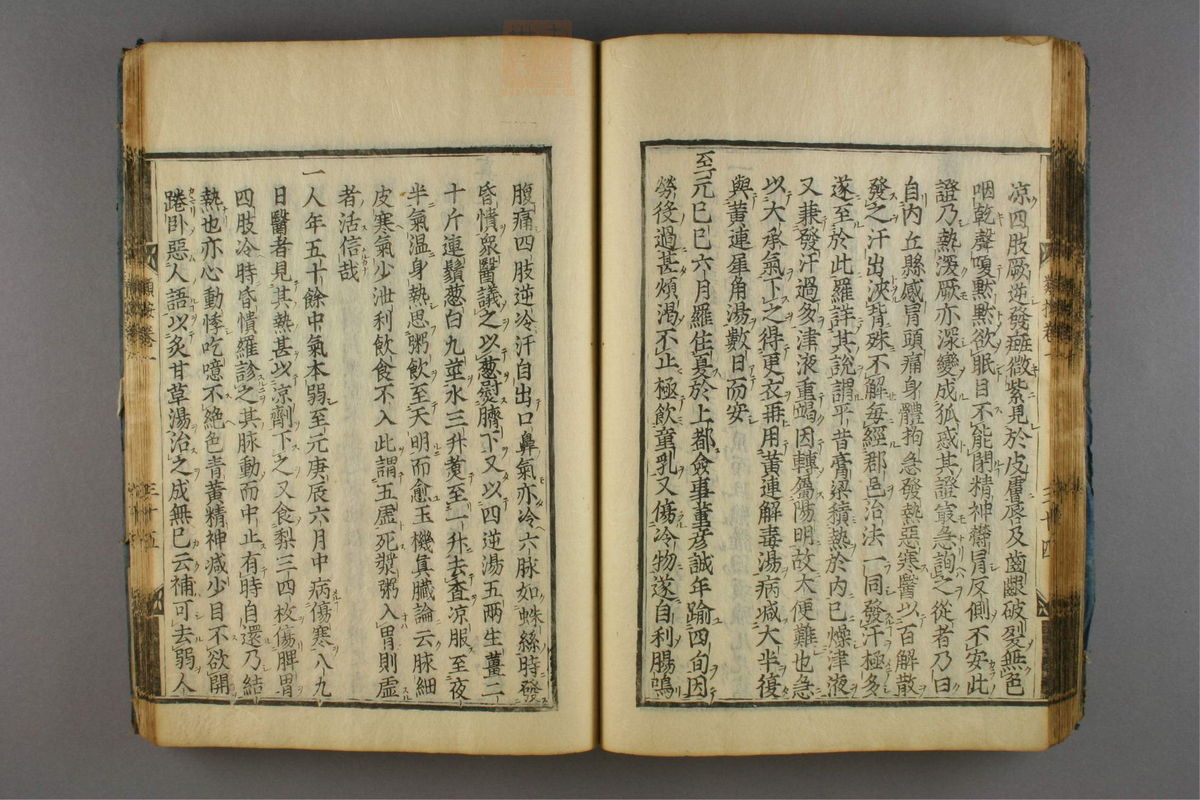 凉四肢厥逆發斑微紫見於皮膚唇及齒齦破裂無色
咽乾聲嗄默默欲眠目不能閉精神欝冐反側不安此
證乃熱深厥亦深變成狐惑其證最急詢之從者乃曰
自内丘縣感冒頭痛身體拘急發熱惡寒醫以百解散
發之汗出浹背殊不解每經郡邑治法一同發汗極多
遂至於此羅詳其說謂平昔膏粱積熱於内已燥津液
又兼發汗過多津液重竭因轉屬陽明故大便難也急
以大承氣下之得更衣再用黄連解毒湯病减大半復
與黄連犀角湯數日而安
至元己巳六月羅住夏於上都僉事董彦誠年踰四旬因
勞役過甚煩渴不止極飲童乳又傷冷物遂自利腸鳴
腹痛四肢逆冷汗自出口鼻氣亦冷六脉如蛛絲時發
昏憒衆醫議之以葱熨臍下又以四逆湯五兩生薑二
十斤連鬚葱白九莖水三升煑至一升去査凉服至夜
半氣温身熱思粥飲至天明而愈玉機真臟論云脉細
皮寒氣少泄利飲食不入此謂五虚死漿粥入胃則虚
者活信哉
一人年五十餘中氣本弱至元庚辰六月中病傷寒八九
日醫者見其熱甚以凉劑下之又食梨三四枚傷脾胃
四肢冷時昏憒羅診之其脉動而中止有時自還乃結
熱也亦心動悸吃噫不絶色青黄精神减少目不欲開
踡卧惡人語以炙甘草湯治之成無已云補可去弱人